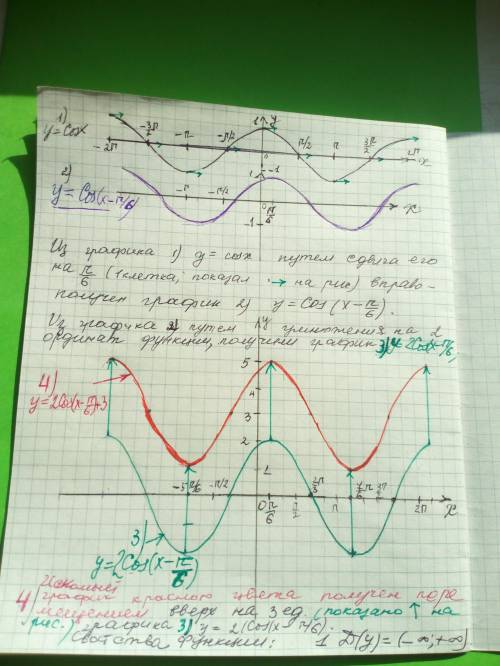 1)
y=Cosx
1 y
-2π -3π/2 -π -π/2 0 π/2 π 3π/2 2π x
-1
2)
y=Cos(x-π/6)
1
-π -π/2 π/6 x
-1
Из графика 1) y=cosx путем сдвига его
на π/6 (1клетка, показал → на рис) вправо-
получен график 2) y=Cos(x-π/6).
Из графика 2) путем умножения на 2
ординат функции, получили график 3) y=2Cos(x-π/6)
y
5
4)
y=2Cos(x-π/6)+3
4
3
2
1
-5π/6 -π/2 0 π/6 π/2 2π/3 7π/6 3π/2 2π x
3)
y=2Cos(x-π/6)
4) Искомый
график красного цвета получен пере
мещением вверх на 3 ед. (показано ↑ на
рис.) графика 3) y=2Cos(x-π/6).
Свойства функции: 1 D(y)=(-∞;+∞)